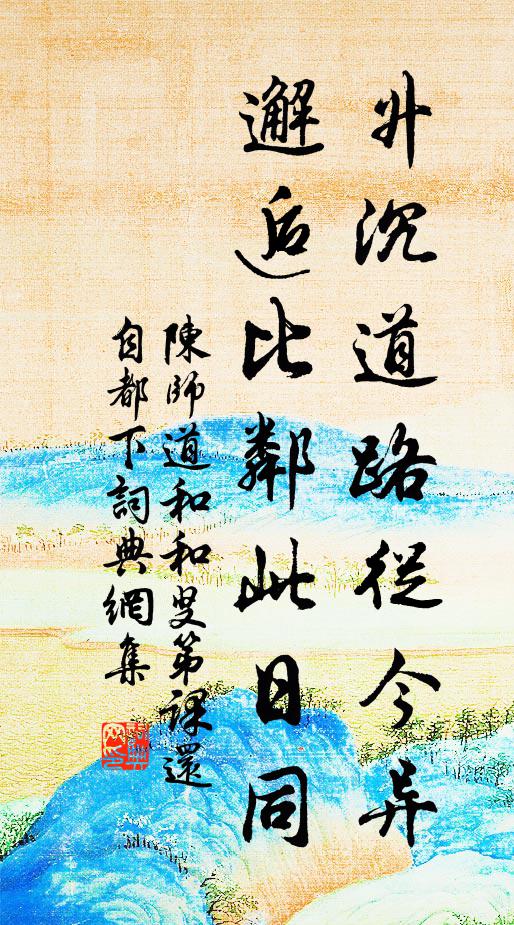 升沉道路從今异
邂逅比鄰此日同
陳師道和和叟第課還
自都下詞典網集